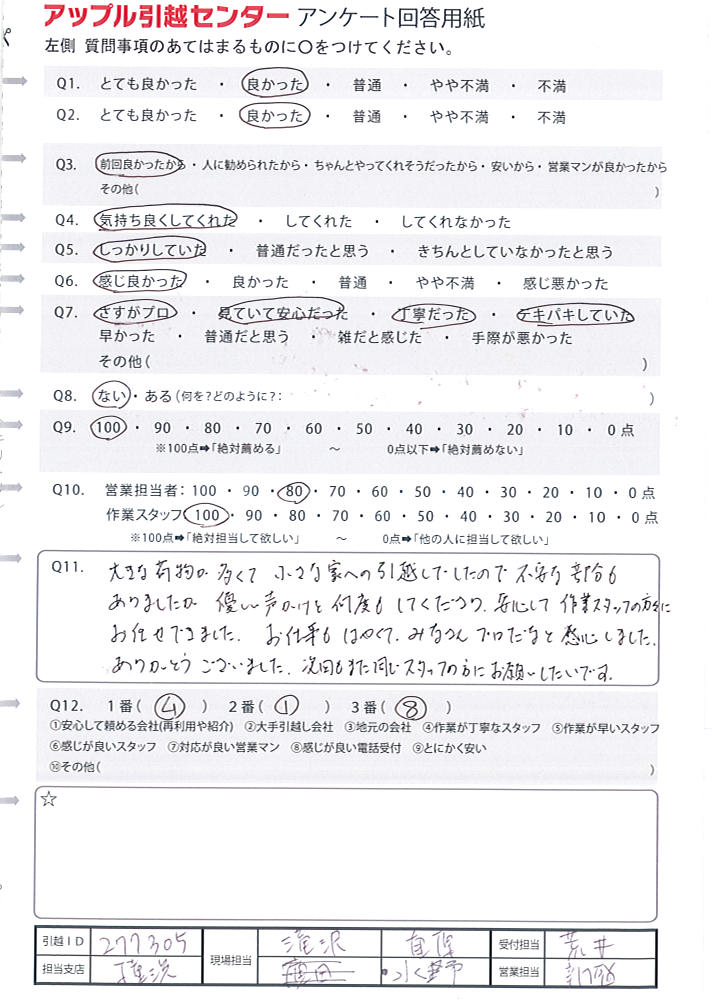 アップル引越センター アンケート回答用紙
左側 質問事項のあてはまるものに○をつけてください。
Q1. とても良かった ・ 良かった ・ 普通 ・ やや不満 ・ 不満
Q2. とても良かった ・ 良かった ・ 普通 ・ やや不満 ・ 不満
Q3. 前回良かったから・人に勧められたから・ちゃんとやってくれそうだったから・安いから・営業マンが良かったから
その他( )
Q4. 気持ち良くしてくれた ・ してくれた ・ してくれなかった
Q5. しっかりしていた ・ 普通だったと思う ・ きちんとしていなかったと思う
Q6. 感じ良かった ・ 良かった ・ 普通 ・ やや不満 ・ 感じ悪かった
Q7. さすがプロ ・ 見ていて安心だった ・ 丁寧だった ・ テキパキしていた
早かった ・ 普通だと思う ・ 雑だと感じた ・ 手際が悪かった
その他( )
Q8. ない・ある(何を?どのように?: )
Q9. 100 ・ 90 ・ 80 ・ 70 ・ 60 ・ 50 ・ 40 ・ 30 ・ 20 ・ 10 ・ 0点
※100点➡「絶対薦める」 ～ 0点以下➡「絶対薦めない」
Q10. 営業担当者:100 ・ 90 ・ 80 ・ 70 ・ 60 ・ 50 ・ 40 ・ 30 ・ 20 ・ 10 ・ 0点
作業スタッフ:100 ・ 90 ・ 80 ・ 70 ・ 60 ・ 50 ・ 40 ・ 30 ・ 20 ・ 10 ・ 0点
※100点➡「絶対担当して欲しい」 ～ 0点➡「他の人に担当して欲しい」
Q11. 大きな荷物が多くて 小さな家への引越しでしたので 不安な部分も
ありましたが 優しい声かけを何度もしてくださり、安心して作業スタッフの方々に
お任せできました。 お仕事も はやくて、みなさん プロだなと感心しました。
ありがとうございました。次回もまた同じスタッフの方にお願いしたいです。
Q12. 1番( 4 ) 2番( 1 ) 3番( 8 )
①安心して頼める会社(再利用や紹介) ②大手引越し会社 ③地元の会社 ④作業が丁寧なスタッフ ⑤作業が早いスタッフ
⑥感じが良いスタッフ ⑦対応が良い営業マン ⑧感じが良い電話受付 ⑨とにかく安い
⑩その他( )
☆
引越ID 277305 現場担当 滝沢 受付担当 荒井
担当支店 横浜 水野 営業担当